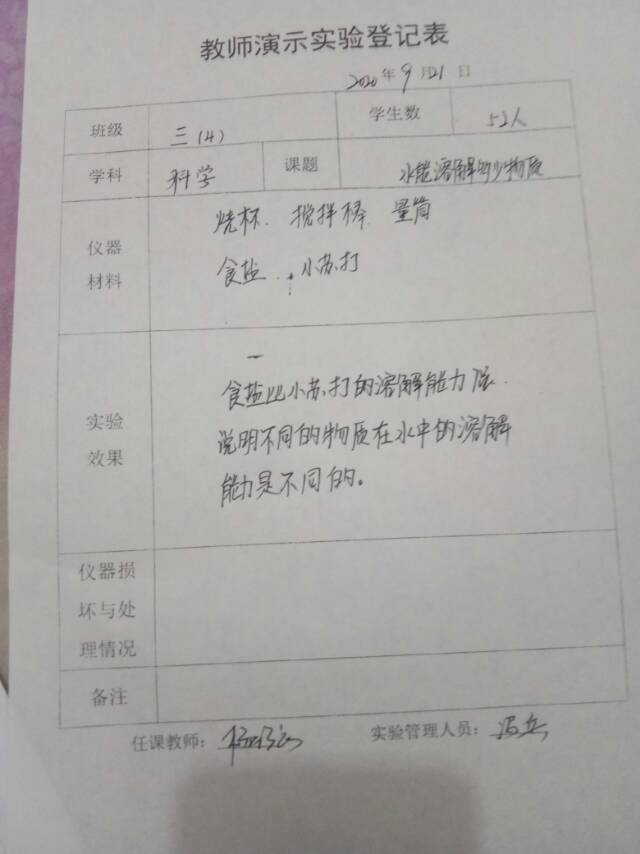 教师演示实验登记表
2020年9月21日
班级 三(4) 学生数 52人
学科 科学 课题 水能溶解多少物质
仪器材料 烧杯、搅拌棒 量筒
食盐、小苏打
实验效果 食盐比小苏打的溶解能力强.
说明不同的物质在水中的溶解
能力是不同的。
仪器损坏与处理情况
备注
任课教师: 实验管理人员: